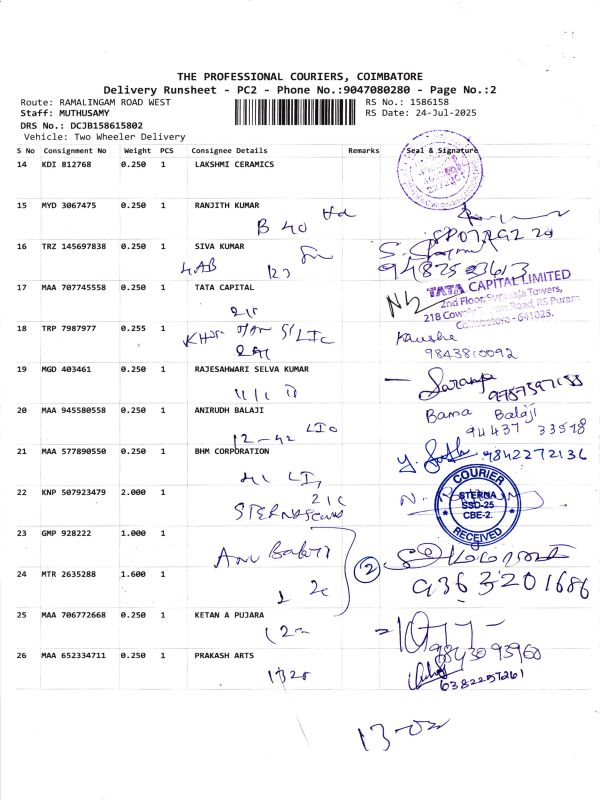 THE PROFESSIONAL COURIERS, COIMBATORE
Delivery Runsheet - PC2 - Phone No.:9047080280 - Page No.:2
Route: RAMALINGAM ROAD WEST
RS No.: 1586158
Staff: MUTHUSAMY
RS Date: 24-Jul-2025
DRS No.: DCJB158615802
Vehicle: Two Wheeler Delivery
S No Consignment No Weight PCS Consignee Details Remarks Seal & Signature
14 KDI 812768 0.250 1 LAKSHMI CERAMICS
15 MYD 3067475 0.250 1 RANJITH KUMAR
B 40
16 TRZ 145697838 0.250 1 SIVA KUMAR
4AB
17 MAA 707745558 0.250 1 TATA CAPITAL
TATA CAPITAL LIMITED
2nd Floor, Towers,
218 Road, RS Puram
Coimbatore - 641025.
18 TRP 7987977 0.255 1
9843810092
19 MGD 403461 0.250 1 RAJESHAWARI SELVA KUMAR
20 MAA 945580558 0.250 1 ANIRUDH BALAJI
Bama Balaji
94437 33578
12-42
21 MAA 577890550 0.250 1 BHM CORPORATION
9842272136
22 KNP 507923479 2.000 1
COURIER
STERNA
SSD-25
CBE-2.
RECEIVED
23 GMP 928222 1.000 1
Anu Balaji
2
24 MTR 2635288 1.600 1
9363201686
25 MAA 706772668 0.250 1 KETAN A PUJARA
9843093960
26 MAA 652334711 0.250 1 PRAKASH ARTS
6382257261
1320